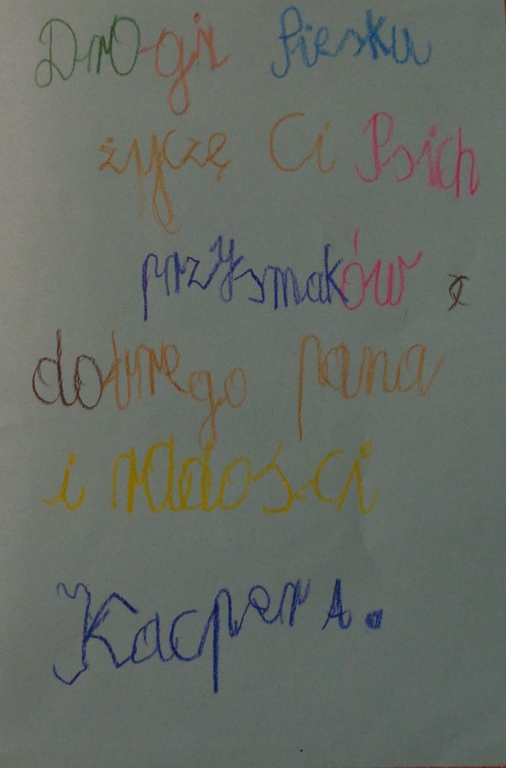 DrOgi Piesku
życzę Ci Psich
przysmaków
dobrego pana
i radości
Kacper A.